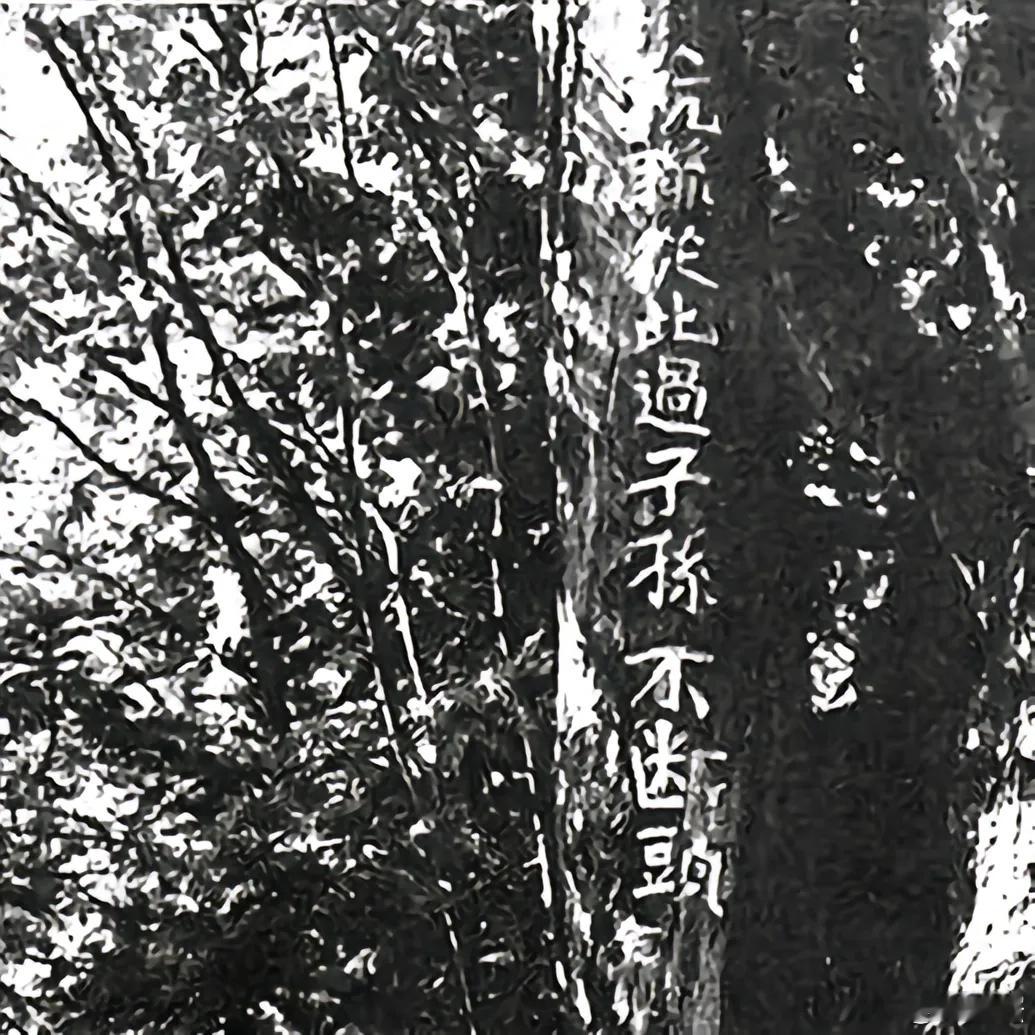 從此過子孫不断頭